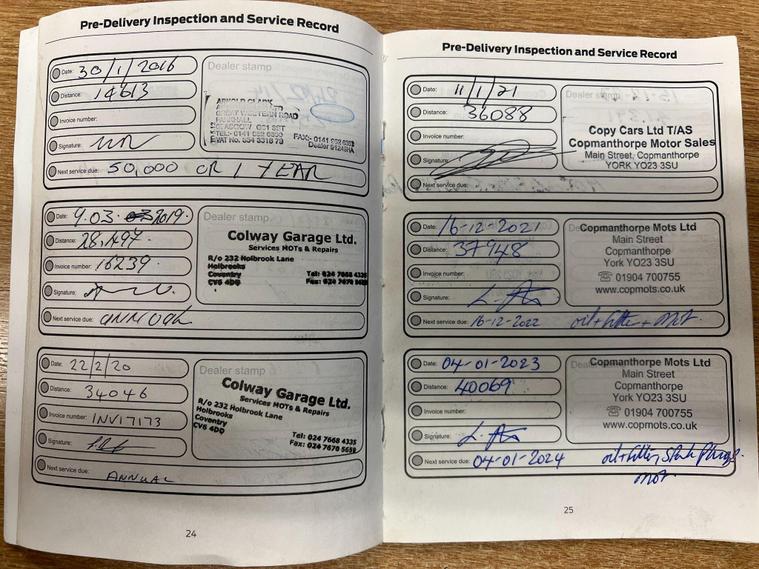 Pre-Delivery Inspection and Service Record
Date: 30/1/2016
Distance: 14613
Invoice number:
Signature:
Next service due: 50,000 OR 1 YEAR
Dealer stamp
ARNOLD CLARK
GREAT WESTERN ROAD
Date: 9.03. 2019.
Distance: 28,297.
Invoice number: 16239.
Signature:
Next service due: ANNUAL
Dealer stamp
Colway Garage Ltd.
Services MOTs & Repairs
R/o 232 Holbrook Lane
Holbrooks
Coventry
CV6 4DD
Tel: 024 7668 4335
Fax: 024 7670 5659
Date: 22/2/20
Distance: 34046
Invoice number: INV17173
Signature:
Next service due: ANNUAL
Dealer stamp
Colway Garage Ltd.
Services MOTs & Repairs
R/o 232 Holbrook Lane
Holbrooks
Coventry
CV6 4DD
Tel: 024 7668 4335
Fax: 024 7670 5659
24
Pre-Delivery Inspection and Service Record
Date: 11/1/21
Distance: 36088
Invoice number:
Signature:
Next service due:
Dealer stamp
Copy Cars Ltd T/AS
Copmanthorpe Motor Sales
Main Street, Copmanthorpe
YORK YO23 3SU
Date: 16-12-2021
Distance: 37948
Invoice number:
Signature:
Next service due: 16-12-2022 oil + filter + MOT.
Copmanthorpe Mots Ltd
Main Street
Copmanthorpe
York YO23 3SU
☎ 01904 700755
www.copmots.co.uk
Date: 04-01-2023
Distance: 40069
Invoice number:
Signature:
Next service due: 04-01-2024 oil + filter, Spark plugs.
MOT.
Copmanthorpe Mots Ltd
Main Street
Copmanthorpe
York YO23 3SU
☎ 01904 700755
www.copmots.co.uk
25